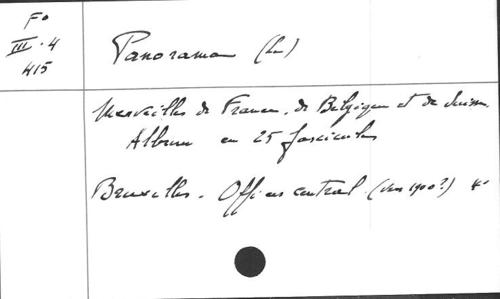 Fo
III.4
415
Panorama (Le)
Merveilles de France, de Belgique et de Suisse.
Album en 25 fascicules
Bruxelles. Office central. (vers 1900?) 4o